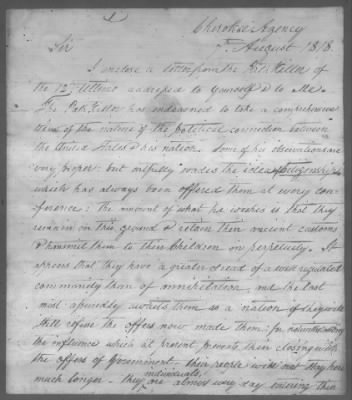 1
Cherokee Agency
7th August 1818.
Sir
I enclose a letter from the Path Killer of
the 12th Ultimo addressed to yourself & to Me.
The Path Killer has endeavored to take a comprehensive
view of the nature of the political connection between
the United States & his nation. Some of his observations are
very proper: but artfully evades the idea of citizenship
which has always been offered them at every con
ference: the amount of what he wishes is that they
remain on this ground & retain their ancient customs
& transmit them to their Children in perpetuity. It
appears that they have a greater dread of a well regulated
community than of annihilation, and the last
most assuredly awaits them as a nation if they
still refuse the offers now made them: for notwithstanding
the influence which at present prevents their closing with
the offers of Government their people will not stay here
much longer. They individually are almost every day entering their